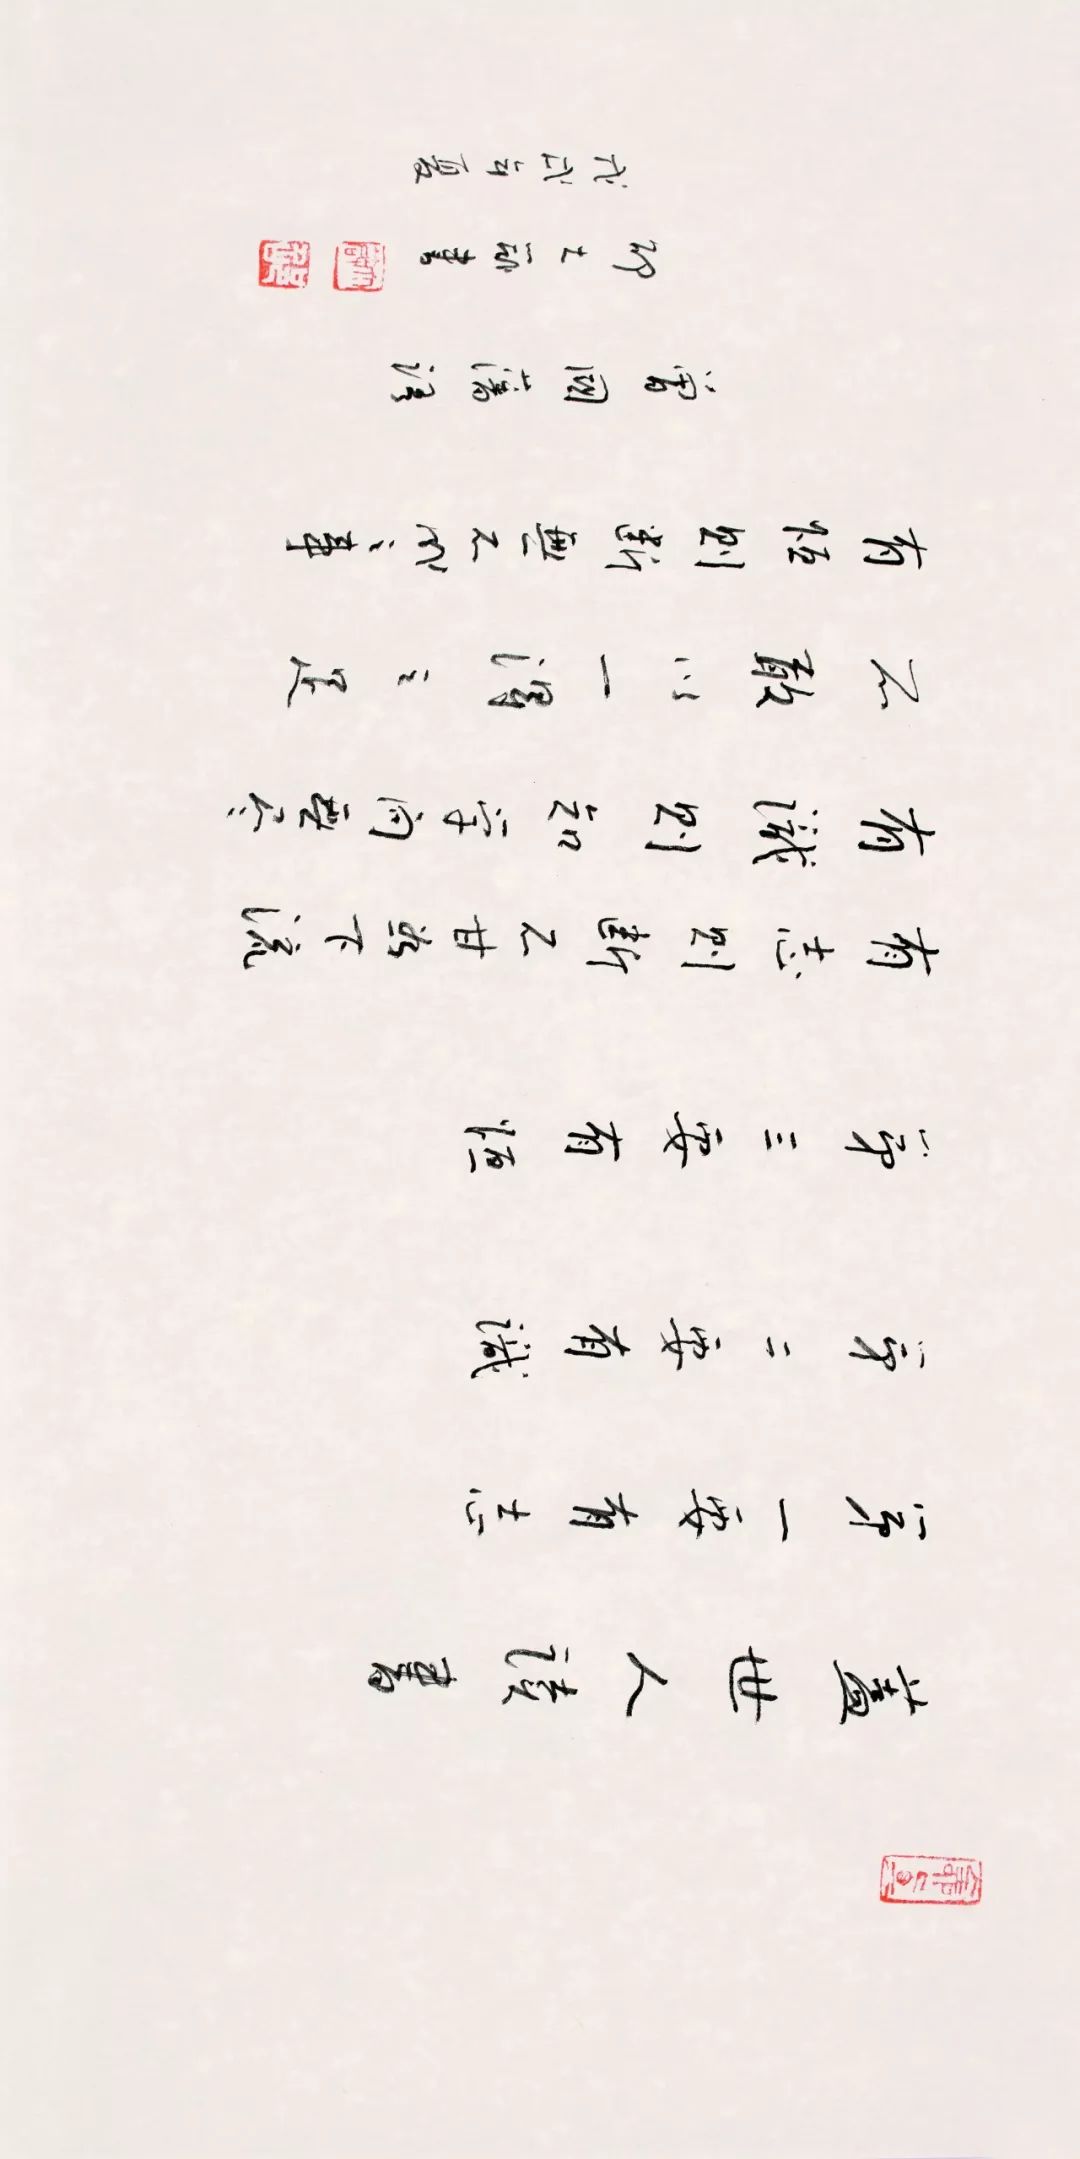 蓋世人讀書
第一要有志
第二要有識
第三要有恒
有志則斷不甘為下流
有識則知学问無尽
不敢以一得之足
有恒則斷無不成之事
曾國藩語
書
戊戌夏